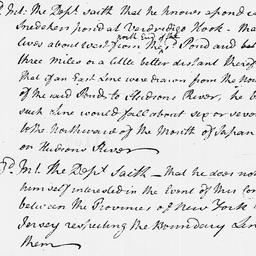 Int: The Dep.t saith that he knows a pond ca
Snedekers pond at Verdredigo Hook – tha
north End of the
lives about west from this s.d Pond and bet
three miles or a little better distant therof
that if an East Line were drawn from the No
of the said Pond to Hudsons River, he b
such Line would fall about six or seve
to the Northward of the Mouth of Japan
on Hudsons River
Int. The Dep.t Saith – that he does no
himself interested in the Event of this Con
between the Provinces of New York
Jersey respecting the Boundary Lin
them